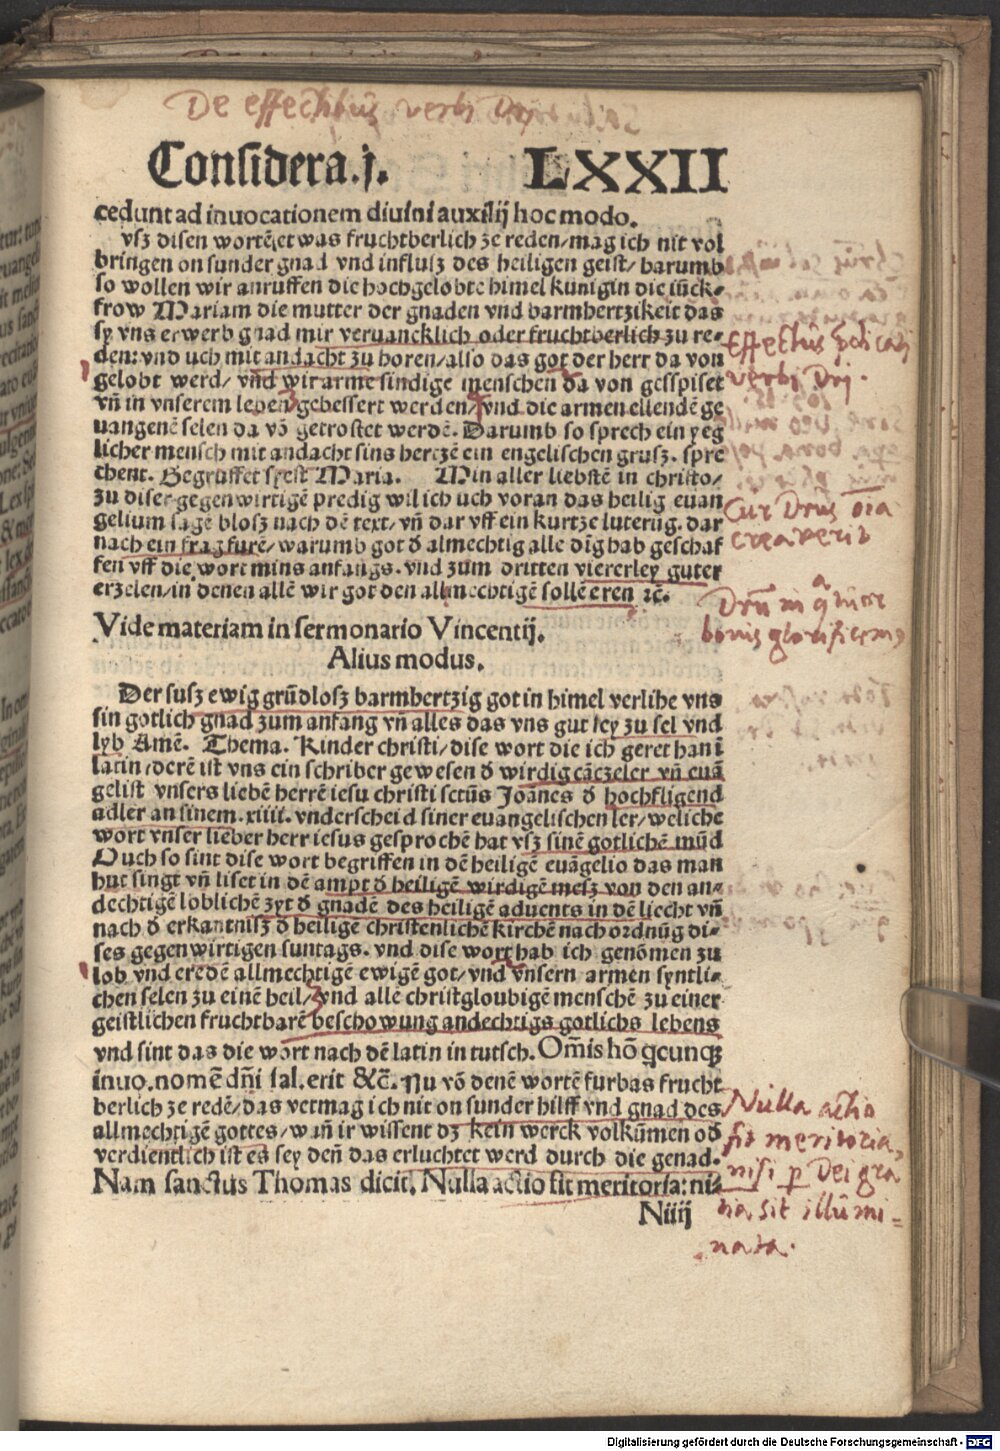 De effectibus verbi Dei
Considera.j. LXXII
cedunt ad inuocationem diuini auxilij hoc modo.
vſz diſen wortē etwas fruchtberlich ze reden/mag ich nit vol
bringen on ſunder gnad vnd influſz des heiligen geiſt/darumb
ſo wollen wir anruffen die hochgelobte himel kunigin die iūck⸗
frow Mariam die mutter der gnaden vnd barmhertzikeit das
ſy vns erwerb gnad mir veruancklich oder fruchtberlich zu re⸗
den: vnd uch mit andacht zu horen/alſo das got der herr da von
gelobt werd/ vnd wir arme ſindige menſchen da von geſſpiſet
vñ in vnſerem leben gebeſſert werden/ vnd die armen ellendē ge
uangenē ſelen da vō getroſtet werdē. Darumb ſo ſprech ein yeg
licher menſch mit andacht ſins hertzē ein engeliſchen gruſz. ſpre
chent. Gegruͤſſet ſyeſt Maria. Min aller liebſtē in chriſto/
zu diſer gegenwirtigē predig wil ich uch voran das heilig euan
gelium ſagē bloſz nach dē text/ vñ dar vff ein kurtze luterūg. dar
nach ein frag furē/warumb got ď almechtig alle dīg hab geſchaf
fen vff die wort mins anfangs. vnd zum dritten viererley guter
erzelen/in denen allē wir got den allmechtigē ſollē eren ꝛc̄.
Vide materiam in ſermonario Vincentij.
Alius modus.
Der ſuſz ewig grūdloſz barmhertzig got in himel verlihe vns
ſin gotlich gnad zum anfang vñ alles das vns gut ſey zu ſel vnd
lyb Amē. Thema. Kinder chriſti/diſe wort die ich geret han ī
latin/derē iſt vns ein ſchriber geweſen ď wirdig cāczeler vñ euā
geliſt vnſers liebē herrē ieſu chriſti ſctūs Joānes ď hochfligend
adler an ſinem.xiiii.vnderſcheid ſiner euangeliſchen ler/weliche
wort vnſer lieber herr ieſus geſprochē hat vſz ſinē gotlichē mūd
Ouch ſo ſint diſe wort begriffen in dē heiligē euāgelio das man
hut ſingt vñ liſet in dē ampt ď heiligē wirdigē meſz von den an⸗
dechtigē loblichē zyt ď gnadē des heiligē aduents in dē liecht vñ
nach ď erkantniſz ď heiligē chriſtenlichē kirchē nach ordnūg di⸗
ſes gegenwirtigen ſuntags. vnd diſe wort hab ich genōmen zu
lob vnd eredē allmechtigē ewigē got/ vnd vnſern armen ſyntli⸗
chen ſelen zu einē heil/ vnd allē chriſtgloubigē menſchē zu einer
geiſtlichen fruchtbarē beſchowung andechtigs gotlichs lebens
vnd ſint das die wort nach dē latin in tutſch. Om̄is hō qcunqꝫ
inuo.nomē dn̄i ſal.erit &c̄. Nu vō denē wortē furbas frucht
berlich ze redē/das vermag ich nit on ſunder hilff vnd gnad des
allmechtigē gottes/wañ ir wiſſent dz kein werck volkūmen oď
verdientlich iſt es ſey deñ das erluchtet werd durch die genad.
Nam ſanctus Thomas dicit. Nulla actio fit meritoria: ni⸗
Niiij
Effectus
verbi Dei.
Cur Deus oīa
creaverit
Nulla actio
fit meritoria,
nisi p Dei gra
tia sit illūmi=
nata.
Digitalisierung gefördert durch die Deutsche Forschungsgemeinschaft - DFG